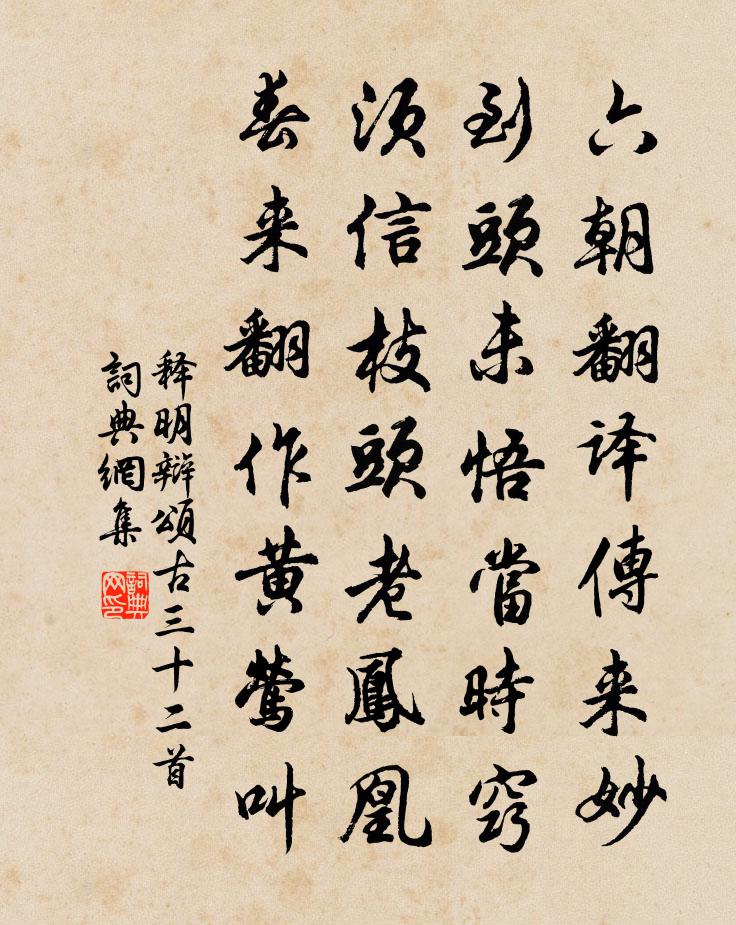 六朝翻译傳来妙
到頭未悟當時窍
須信枝頭老鳳凰
春来翻作黄莺叫
释明辩頌古三十二首
詞典網集
詞典网印